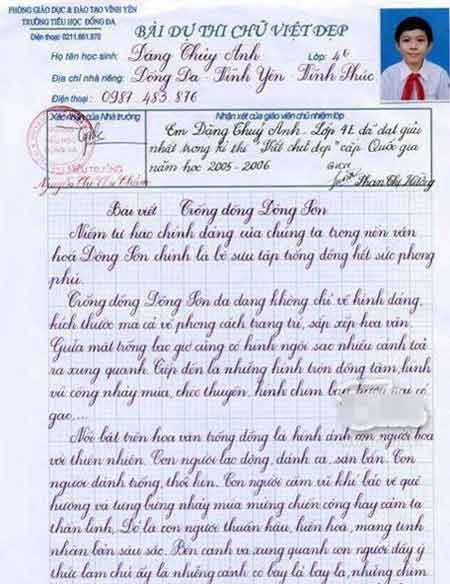 PHÒNG GIÁO DỤC & ĐÀO TẠO VĨNH YÊN
TRƯỜNG TIỂU HỌC ĐỐNG ĐA
Điện thoại: 0211.861.870
BÀI DỰ THI CHỮ VIỆT ĐẸP
Họ tên học sinh: Dặng Thuỷ Anh Lớp: 4E
Địa chỉ nhà riêng: Đống Đa - Vĩnh Yên Vĩnh Phúc
Điện thoại: 0987 483 876
Xác nhận của Nhà trường
Nhận xét của giáo viên chủ nhiệm lớp
Em Dặng Thuỳ Anh. Lớp 4E đã đạt giải
nhất trong kì thi "Viết chữ đẹp" cấp Quốc gia
năm học 2005 - 2006
GVCN
Phan Thị Hường
Bài viết Trống đồng Đông Sơn
Niềm tự hào chính đáng của chúng ta trong nền văn
hoá Đông Sơn chính là bộ sưu tập trống đồng hết sức phong
phú.
Trống đồng Đông Sơn đa dạng không chỉ về hình dáng,
kích thước mà cả về phong cách trang trí, sắp xếp hoa văn.
Giữa mặt trống bao giờ cũng có hình ngôi sao nhiều cánh toả
ra xung quanh. Tiếp đến là những hình tròn đồng tâm, hình
vũ công nhảy múa, chèo thuyền, hình chim bay, hươu nai có
gạc...
Nổi bật trên hoa văn trống đồng là hình ảnh con người hoà
với thiên nhiên. Con người lao động, đánh cá, săn bắn. Con
người đánh trống, thổi kèn. Con người cầm vũ khí bảo vệ quê
hương và tưng bừng nhảy múa mừng chiến công hay cảm tạ
thần linh. Đó là con người thuần hậu, hiền hoà, mang tính
nhân bản sâu sắc. Bên cạnh và xung quanh con người đầy ý
thức làm chủ ấy là những cánh cò bay lả bay la, những chim